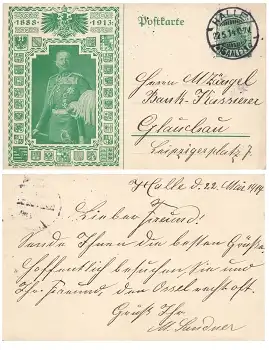 1888 1913
Postkarte
HALLE
22.5.14
(SAALE)
Herrn M Züngel
Bank-Kassierer
Glauchau
Leipzigerplatz 7.
Halle d. 22. Mai 1914
Lieber Freund!
Sende Ihnen die besten Grüße
Hoffentlich besuchen Sie und
Ihr Freund, den Ossel recht oft.
Gruß Ihr
M. Lindner